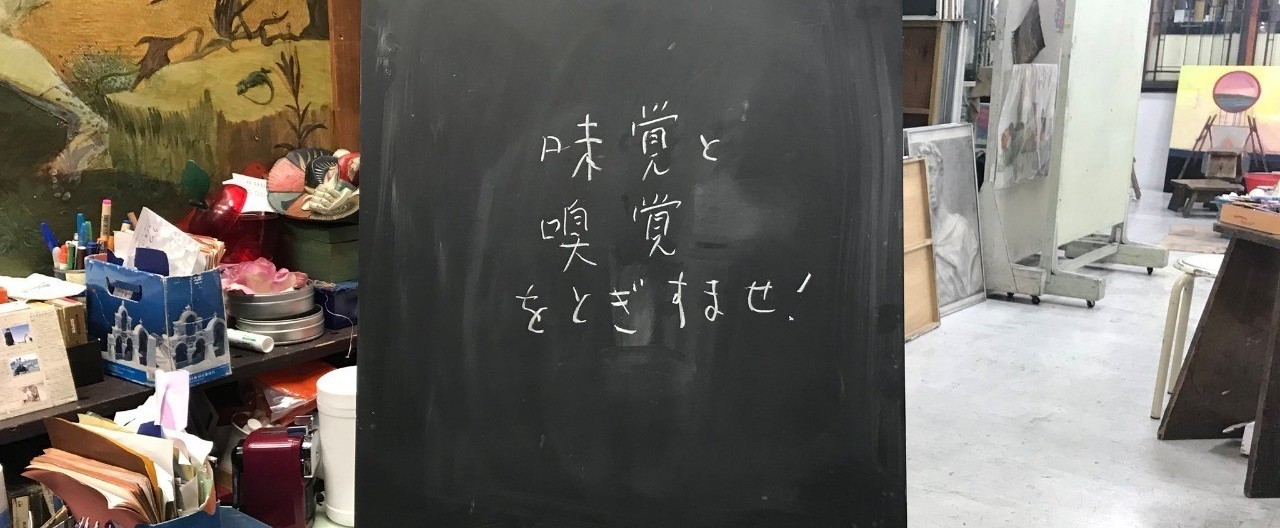 味覚と
嗅覚
をとぎすませ!